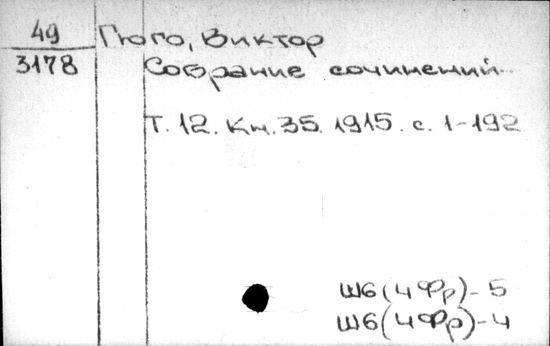 49
3178
Гюго, Виктор
Собрание сочинений..
Т. 12. Кн. 35. 1915. с. 1-192
Ш6(4Фр)-5
Ш6(4Фр)-4